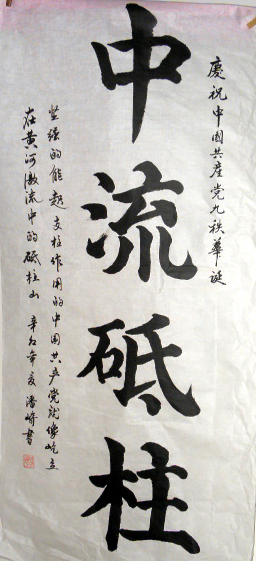 慶祝中國共產党九秩華誕
中流砥柱
坚强的能起支柱作用的中国共产党就像屹立
在黄河激流中的砥柱山 辛卯年夏 潘崎书